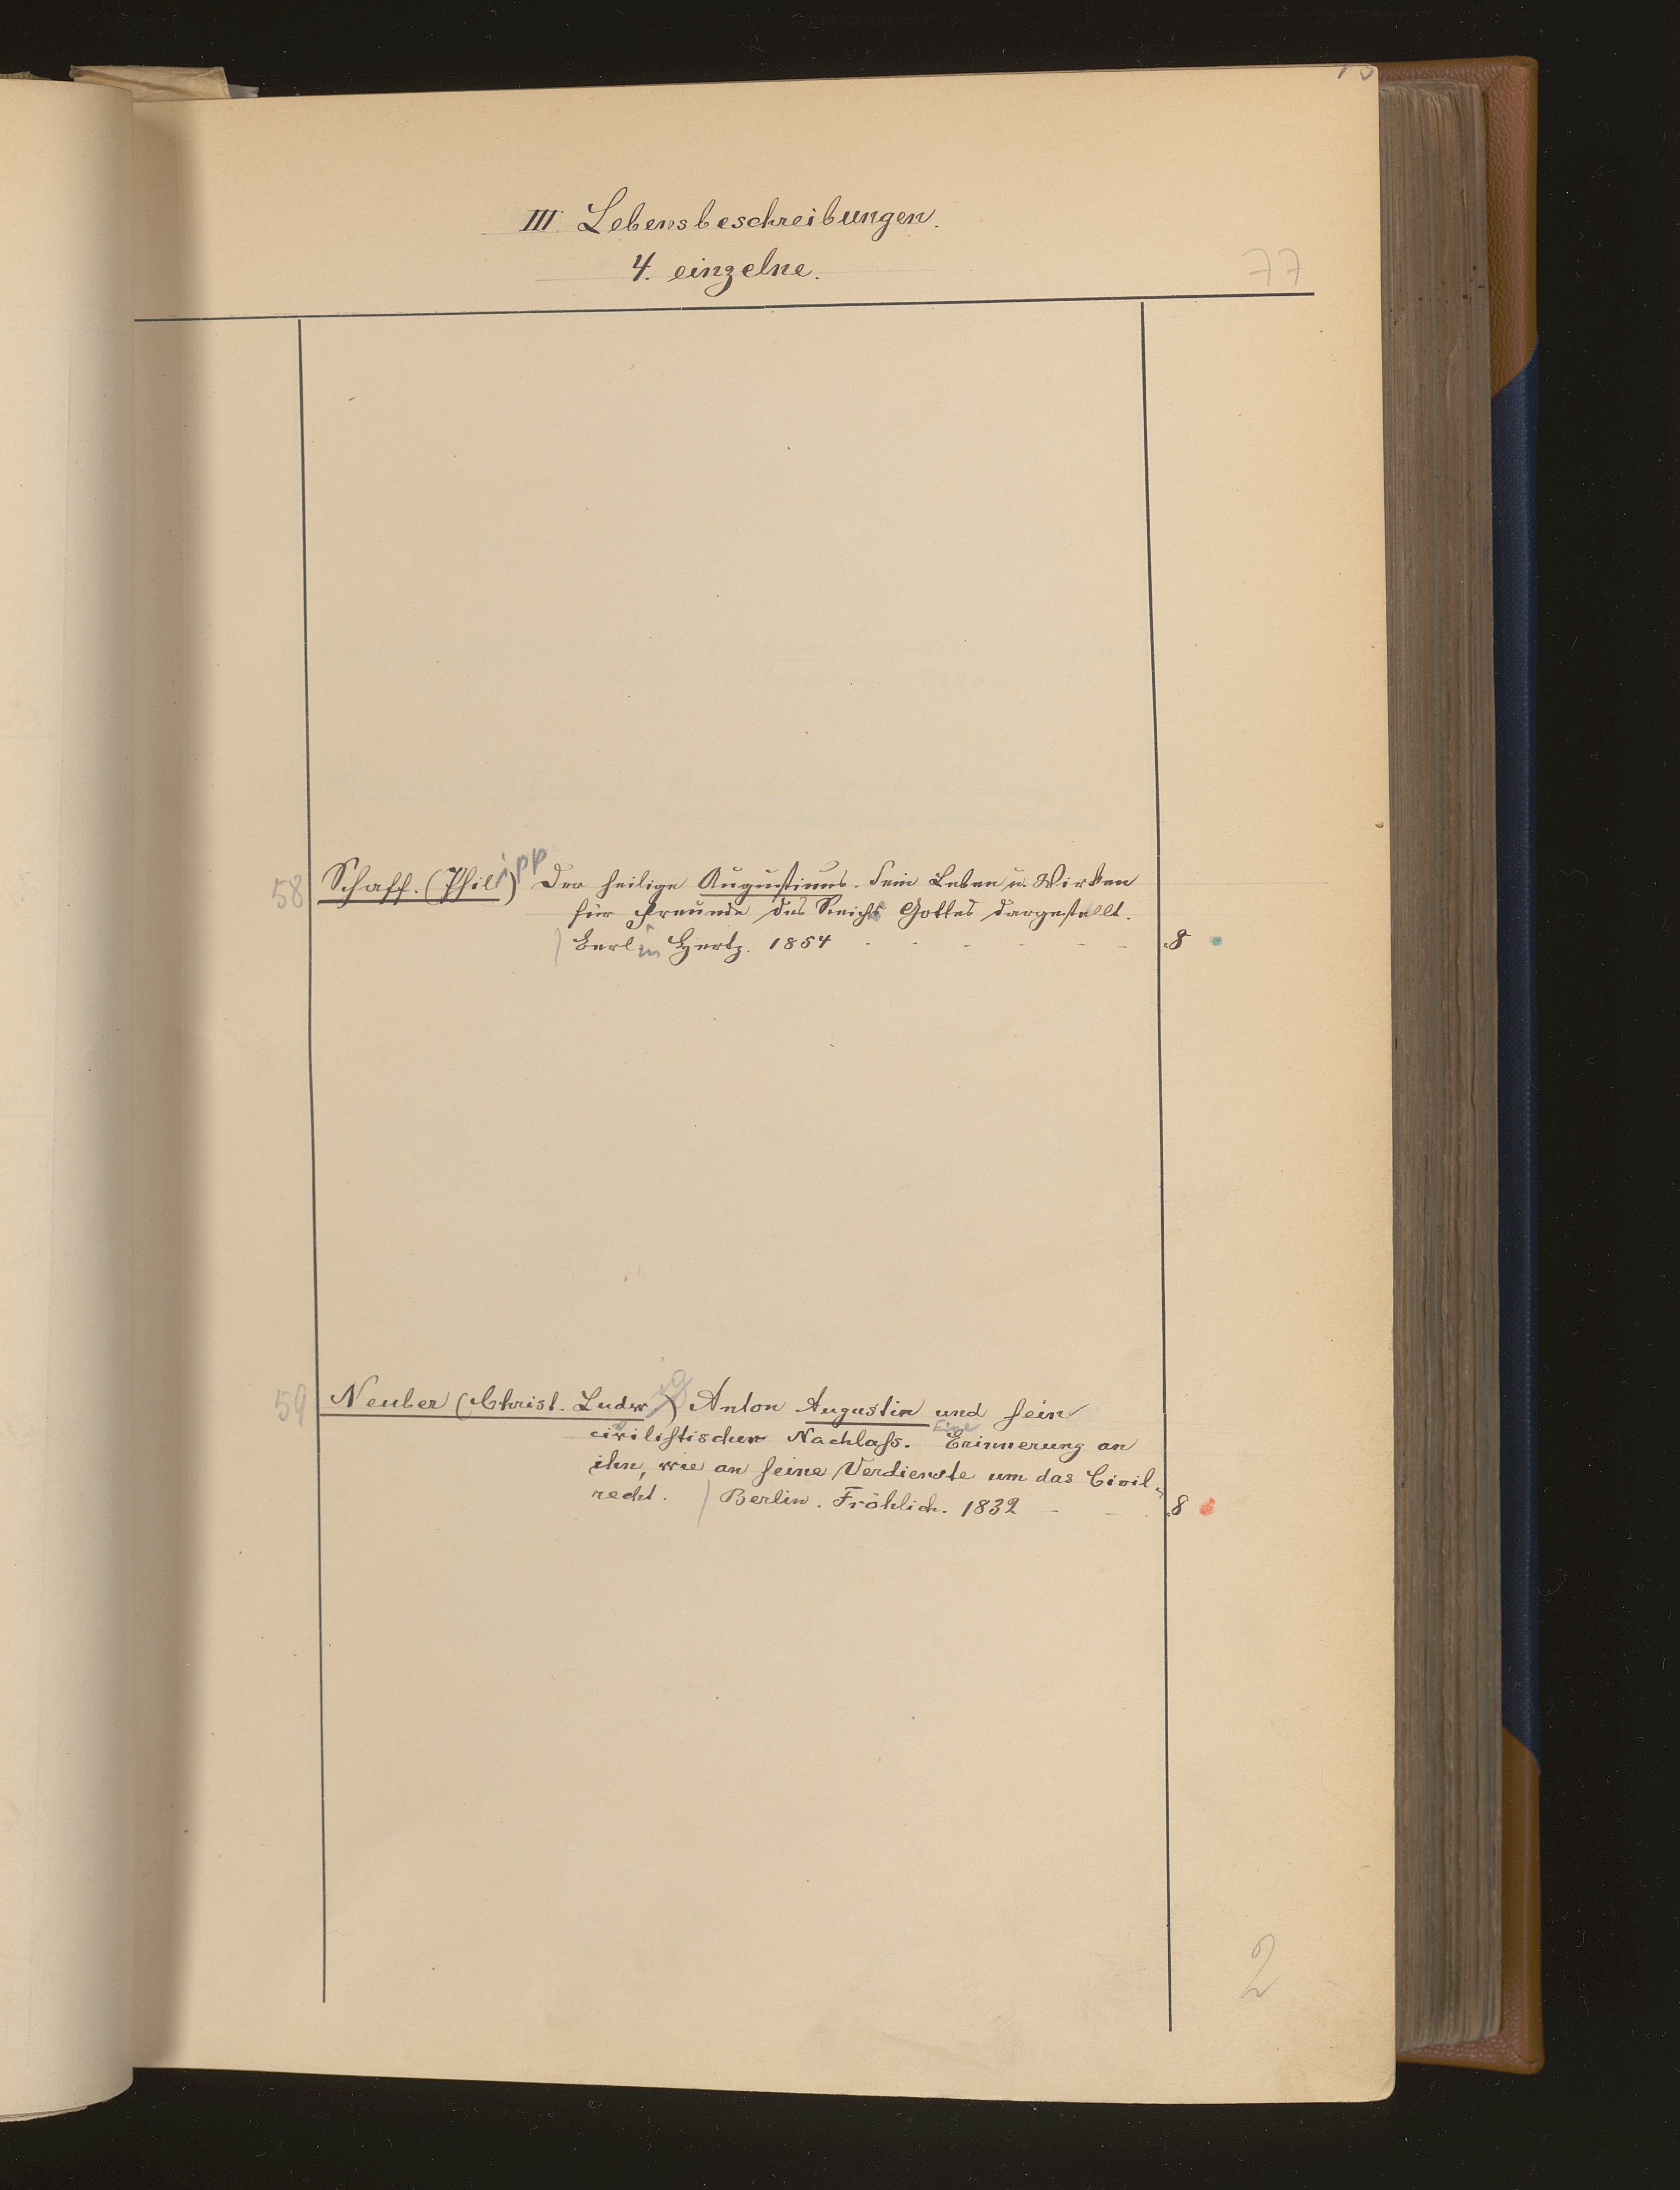 III. Lebensbeschreibungen.
4. einzelne.
77
58 Schaff. (Philipp) Der heilige Augustinus. Sein Leben u. Wirken
für Freunde des Reichs Gottes dargestellt.
Berlin Hertz. 1854 - - - - - - 8
59 Neuber (Christ. Ludwig) Anton Augustin und sein
civilistischer Nachlaß. Eine Erinnerung an
ihn, wie an seine Verdienste um das Civil-
recht. Berlin. Fröhlich. 1832 - - - 8
2